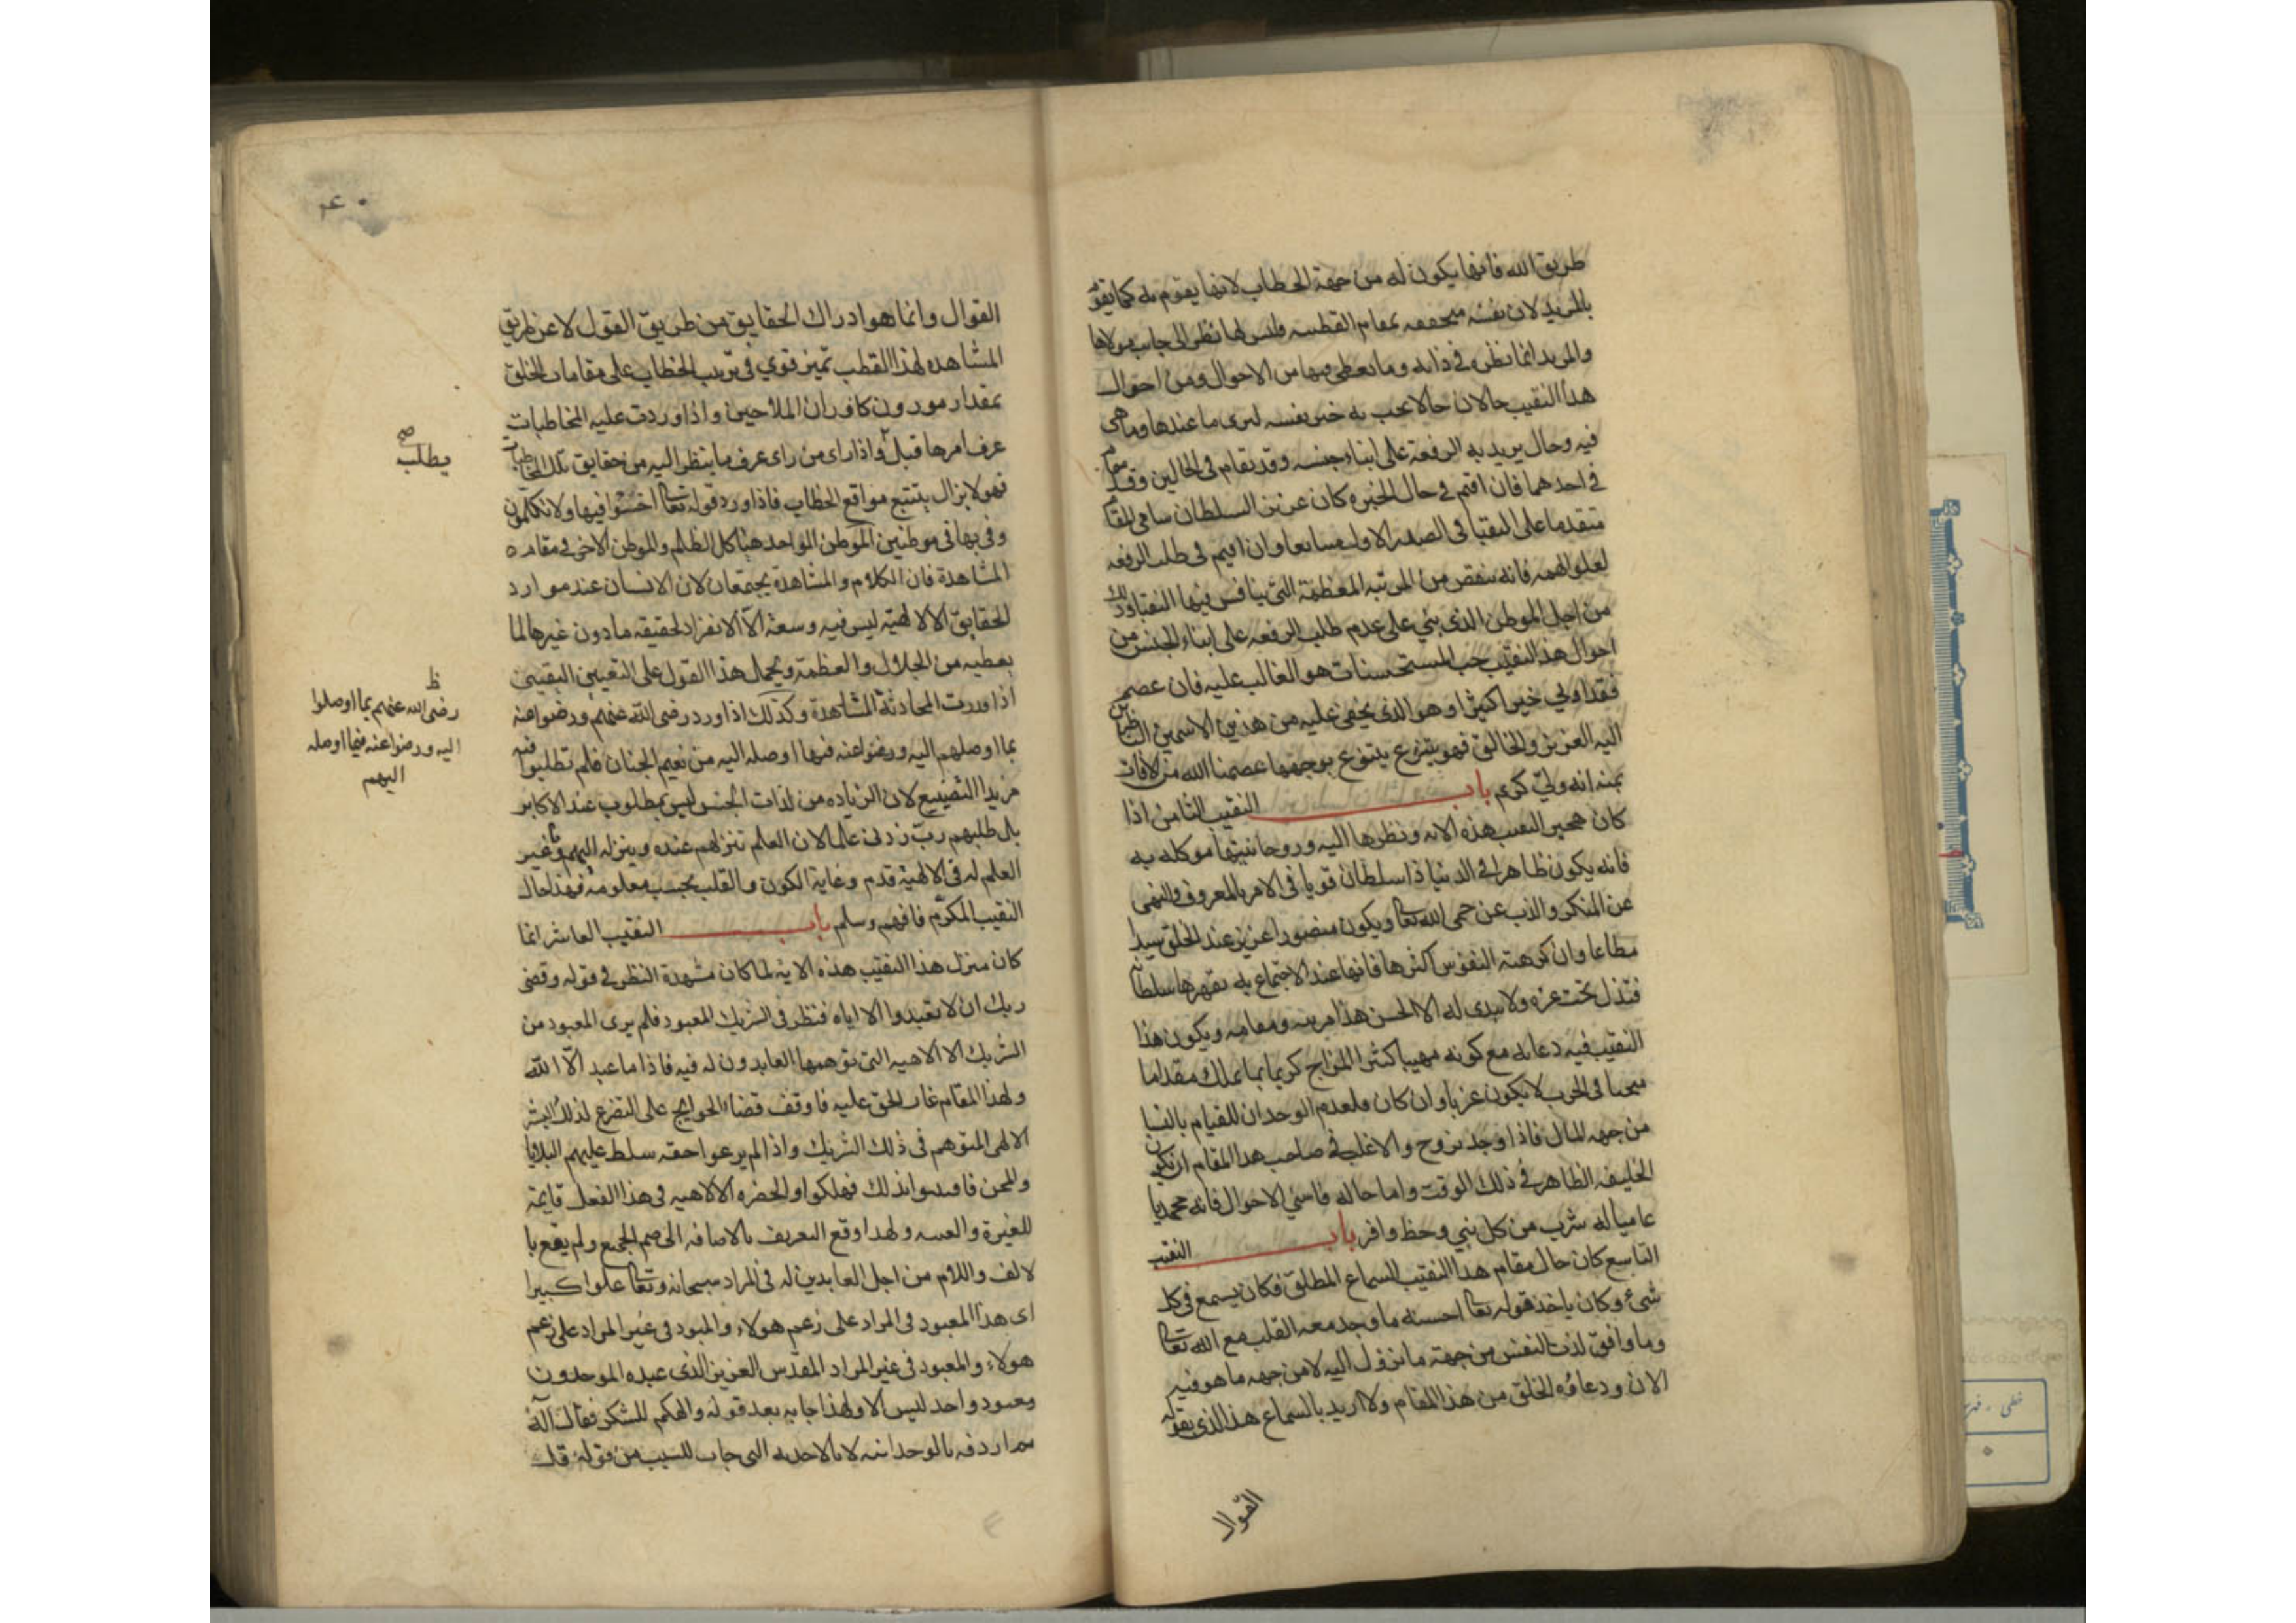 طريق الله فانها يكون له من جهة الخطاب لانها يقوم به كما يقوم
بالمريد لان نفسه متحققه بمقام القطبيه وليس لها نظر الى جانب مولاها
والمريد انما نظره في ذاته وما تعطى فيها من الاحوال ومن احوال
هذا النقيب حالان حالا يحب به خبر نفسه ليرى ما عندها وما هي
فيه وحال يريد به الرفعة على ابناء جنسه وقد يقام في الحالين وقد يقام
في احدهما فان اقيم في حال الخبره كان عزيز السلطان سامي المقام
متقدما على النقبا في الصف الاول مسابعا وان اقيم في طلب الرفعه
لعلو الهمه فانه ينقص من المرتبه المعظمة التي ينافس فيها النقبا وذلك
من اجل الموطن الذي بني على عدم طلب الرفعه على ابناء الجنس من
احوال هذا النقيب حب المستحسنات هو الغالب عليه فان عصم
فقد اوتي خيرا كثيرا وهو الذي يخفى عليه من هذين الاسمين الناظرين
اليه العزيز والخالق فهو يتنوع بتنوع بوجهها عصمنا الله من الافات
بمنه انه ولي كريم باب النقيب الثامن اذا
كان هجير النقيب هذه الايه ونظرها اليه وروحانيتها موكله به
فانه يكون ظاهرا في الدنيا ذا سلطان قويا في الامر بالمعروف والنهى
عن المنكر والذب عن حمى الله تعالى ويكون منصورا عزيز عند الخلق سيدا
مطاعا وان كرهته النفوس اكثرها فانها عند الاجتماع به يقهرها سلطانه
فتذل تحت عزه ولا يبدى له الا الحسن هذا مرتبه ومقامه ويكون هذا
النقيب فيه دعابه مع كونه مهيبا كثير المزاح كريما بما يملك مقداما
في الحرب لا يكون عزبا وان كان فلعدم الوجدان للقيام بالنسا
من جهه المال فاذا وجد تزوج والاغلب في صاحب هذا المقام ان يكون
الخليفه الظاهر في ذلك الوقت واما حاله فاسنى الاحوال فانه محمديا
عاميا له شرب من كل نبي وحظ وافر باب النقيب
التاسع كان حال مقام هذا النقيب السماع المطلق فكان يسمع في كل
شئ وكان ياخذ قوله تعالى احسنه ما وجد معه القلب مع الله تعالى
وما وافق لذت النفس من جهة ما نزول اليه لا من جهه ما هو فيه
الان ودعاؤه الخلق من هذا المقام ولا اريد بالسماع هذا الذي يقوله
القوال
٤٠
القوال وانما هو ادراك الحقايق من طريق القول لا عن طريق
المشاهده لهذا القطب تميز قوي في ترتيب الخطاب على مقامات الخلق
بمقدار موزون كاوزان الملاحين واذا وردت عليه المخاطبات
عرف امرها قبل واذا راى من راى عرف ما ينظر اليه من حقايق تلك المخاطبات
فهو لا يزال يتتبع مواقع الخطاب فاذا ورد قوله تعالى اخسئوا فيها ولا تكلمون
وفى بها في موطنين الموطن الواحد هنا كل الظلم والموطن الاخر في مقام
المشاهدة فان الكلام والمشاهدة يجتمعان لان الانسان عند موارد
الحقايق الالهيه ليس فيه وسعة الا الانفراد لحقيقه ما دون غيرها لما
يعطيه من الجلال والعظمة ويحمل هذا القول على التعيين اليقيني
اذا وردت المحادثة المشاهدة وكذلك اذا ورد رضى الله عنهم ورضوا عنه
بما اوصلهم اليه ورضوا عنه فيها اوصله اليه من نعيم الجنان فلم تطلبوا فيه
مزيدا التضييع لان الزياده من لذات الجنس ليس بمطلوب عند الاكابر
بل طلبهم رب زدنى علما لان العلم تنزلهم عنده وينزله اليهم وغير
العلم له في الالهية قدم وغاية الكون والقلب بحسب معلومه فهذا حال
النقيب المكرم فافهم وسلم باب النقيب العاشر انما
كان منزل هذا النقيب هذه الايه لما كان مشهدة النظر في قوله وقضى
ربك ان لا تعبدوا الا اياه فنظر في الشريك المعبود فلم يرى المعبود من
الشريك الا الاهيه التي توهمها العابدون له فيه فاذا ما عبد الا الله
ولهذا المقام غار الحق عليه فاوقف قضاء الحوايج على التضرع لذلك
الالهى المتوهم في ذلك الشريك واذا لم يرعوا حقه سلط عليهم البلايا
والمحن فافسدوا بذلك فهلكوا والحضره الالاهيه في هذا الفعل قايمة
للغيرة ولهذا وقع التعريف بالاضافه الى ضم الجميع ولم يقع با
لالف واللام من اجل العابدين له في المراد سبحانه وتعالى علوا كبيرا
اى هذا المعبود في المراد على زعم هولاء والمبود في غير المراد على زعم
هولاء والمعبود في غير المراد المقدس العزيز الذى عبده الموحدون
ومعبود واحد ليس الا ولهذا جا به بعد قوله والهكم للشكر فقال اله
اردفه بالوحدانيه لا بالاحديه التي جات للسبب من قوله قل
صح
يطلب
ظ
رضى الله عنهم بما اوصلوا
اليه ورضوا عنه فيما اوصله
اليهم